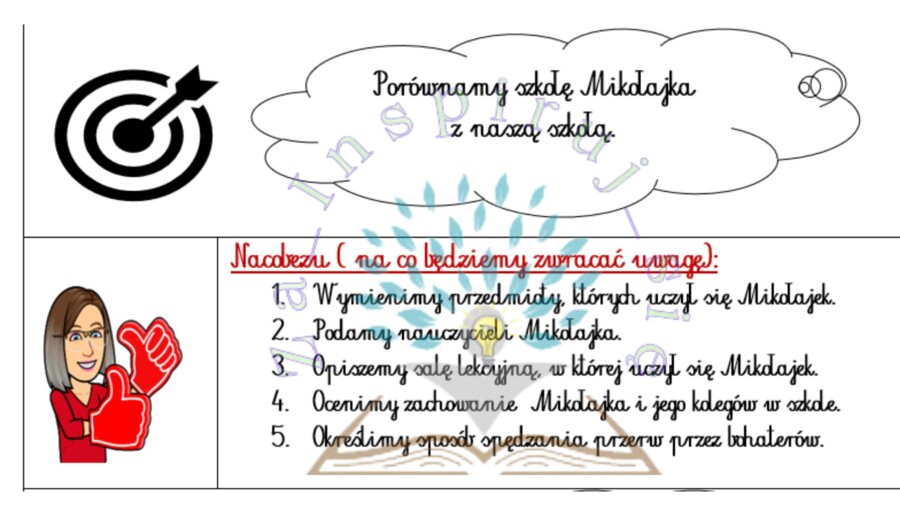 Porównamy szkołę Mikołajka
z naszą szkołą.
Nacobezu ( na co będziemy zwracać uwagę):
1. Wymienimy przedmioty, których uczył się Mikołajek.
2. Podamy nauczycieli Mikołajka.
3. Opiszemy salę lekcyjną, w której uczył się Mikołajek.
4. Ocenimy zachowanie Mikołajka i jego kolegów w szkole.
5. Określimy sposób spędzania przerw przez bohaterów.